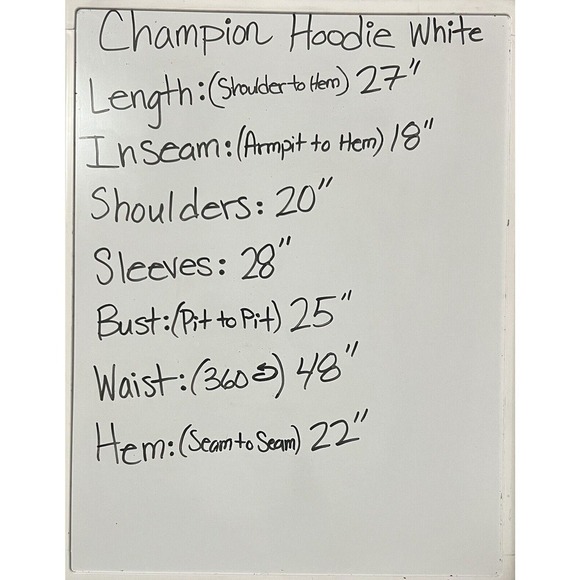 Champion Hoodie White
Length:(Shoulder to Hem) 27"
Inseam:(Armpit to Hem) 18"
Shoulders: 20"
Sleeves: 28"
Bust:(Pit to Pit) 25"
Waist:(360) 48"
Hem:(Seam to Seam) 22"